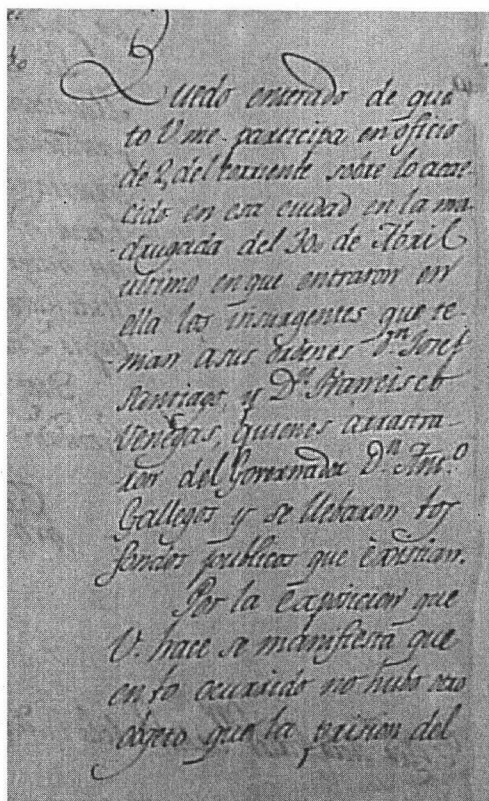 Quedo enterado de quan
to V me participa en oficio
de 2 del corriente sobre lo acae-
cido en esa ciudad en la ma-
drugada del 30 de Abril
ultimo en que entraron en
ella los insurgentes que te-
nian a sus ordenes Dn. Josef
Santiago, y Dn. Francisco
Venegas, quienes arrastra-
ron del Governador Dn. Anto.
Gallegos y se llebaron los
fondos publicos que existian.
Por la exposicion que
V. hace se manifiesta que
en lo ocurrido no hubo otro
objeto que la prision del